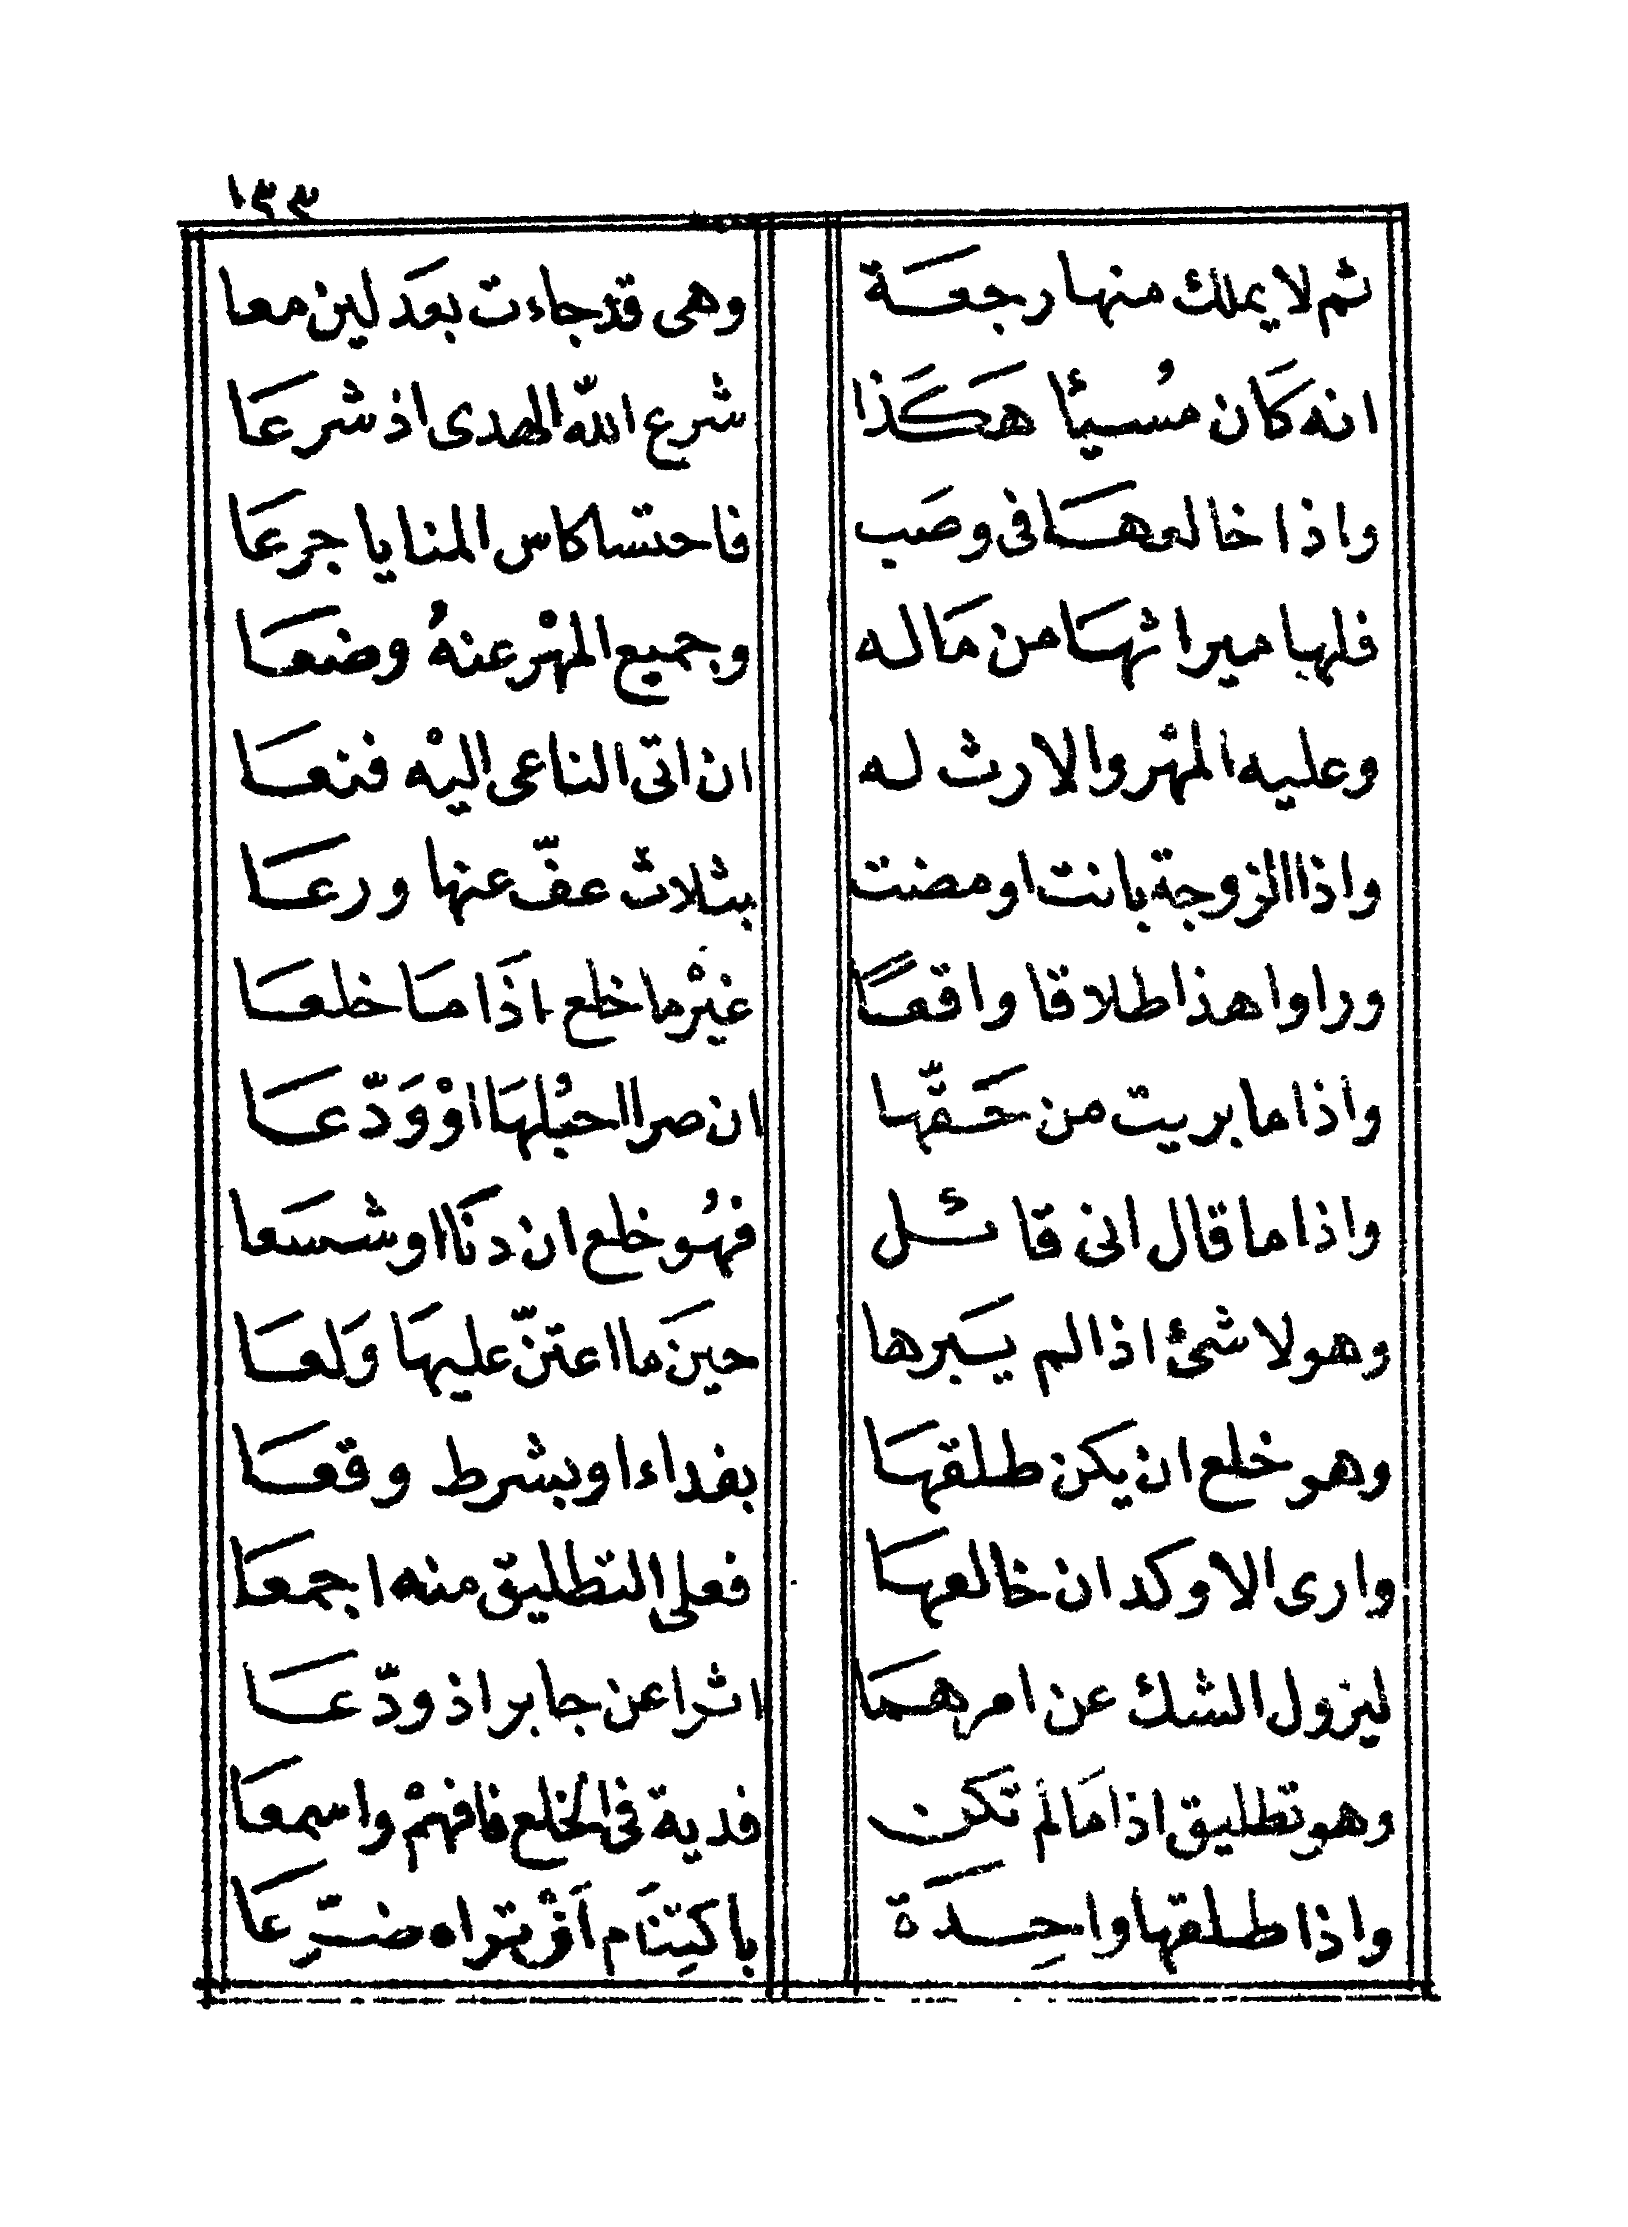 ١٣٣
ثم لا يملك منها رجعة وهى قد جاءت بعد لين معا
انه كان مسيئا هكذا شرع الله الهدى اذ شرعا
واذا خالعها فى وصب فاحتسا كاس المنايا جرعا
فلها ميراثها من ماله وجميع المهر عنه وضعا
وعليه المهر والارث له ان اتى الناعى اليه فنعا
واذا الزوجة بانت او مضت بثلاث عف عنها ورعا
وراوا هذا طلاقا واقعا غير ما خلع اذا ما خلعا
واذا ما بريت من حقها ان صرا حبلها او ودعا
واذا ما قال انى قائل فهو خلع ان دنا او شسعا
وهو لا شئ اذا لم يبرها حين ما اعتن عليها ولعا
وهو خلع ان يكن طلقها بفداء او بشرط وقعا
وارى الاوكد ان خالعها فعلى التطليق منه اجمعا
ليزول الشك عن امرهما اثرا عن جابر اذ ودعا
وهو تطليق اذا ما لم تكن فدية فى الخلع فافهم واسمعا
واذا طلقها واحدة باكتنام افر تراه ضرعا